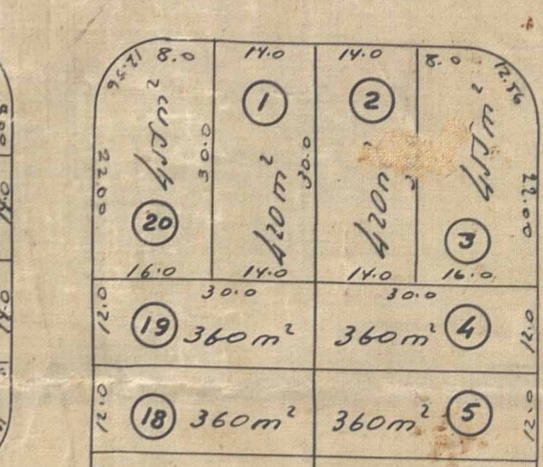 12.56 8.0 14.0 14.0 8.0 12.56
1 2
455m² 30.0 420m² 30.0 420m² 455m²
22.00 20 3 22.00
16.0 14.0 14.0 16.0
30.0 30.0
12.0 19 360m² 360m² 4 12.0
12.0 18 360m² 360m² 5 12.0
14.0
14.0